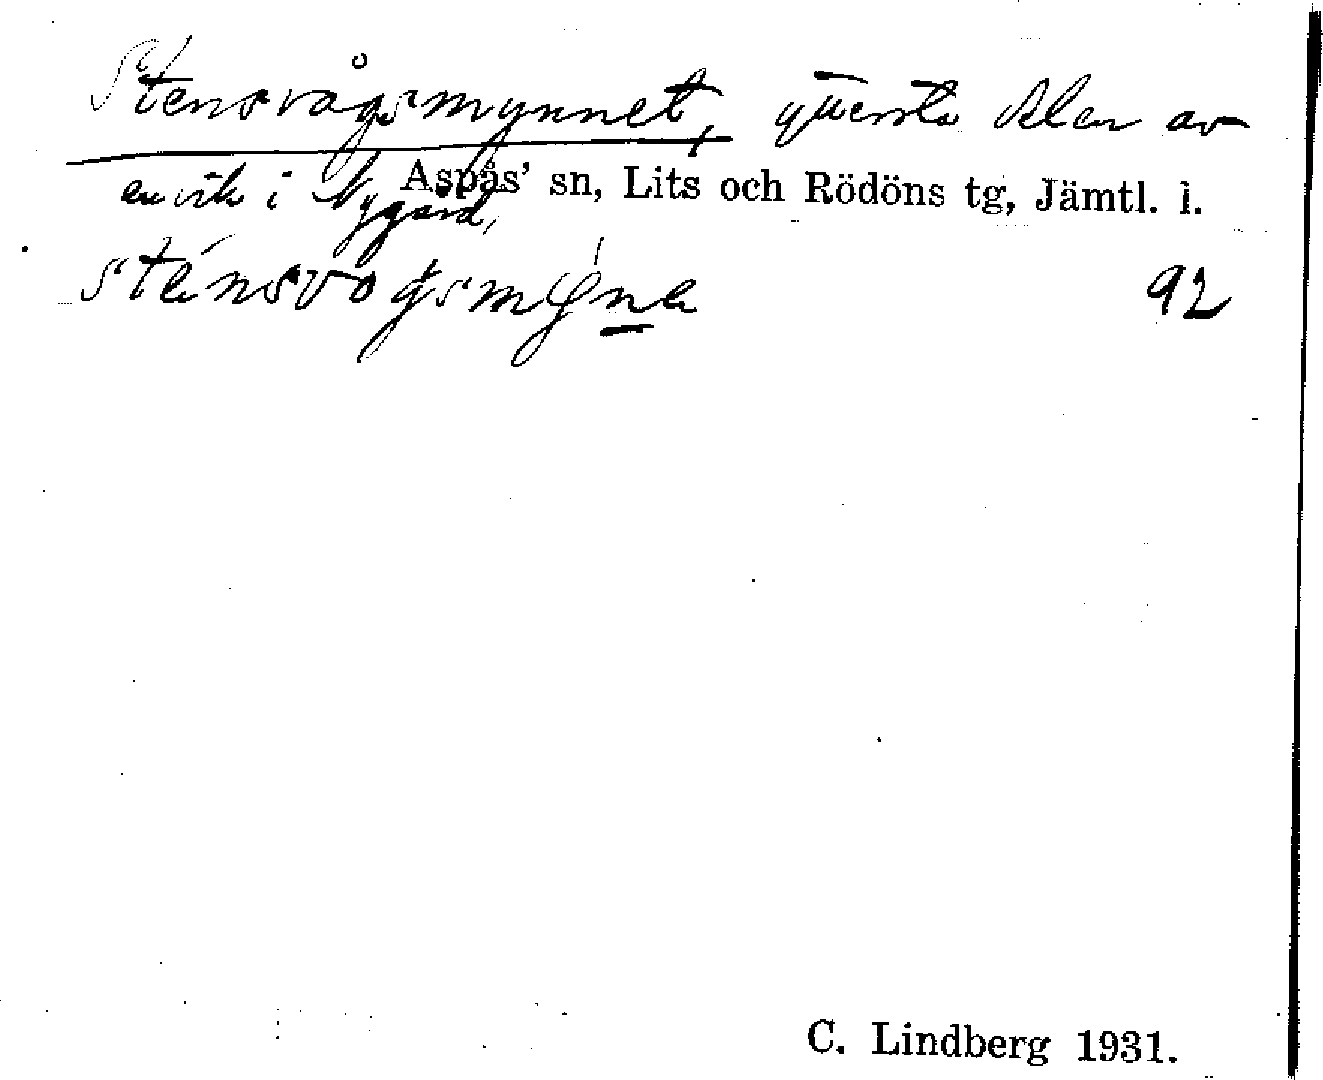 Stensvågsmynnet, yttersta delen av
en vik i Nygård,
Aspås' sn, Lits och Rödöns tg, Jämtl. l.
92
C. Lindberg 1931.